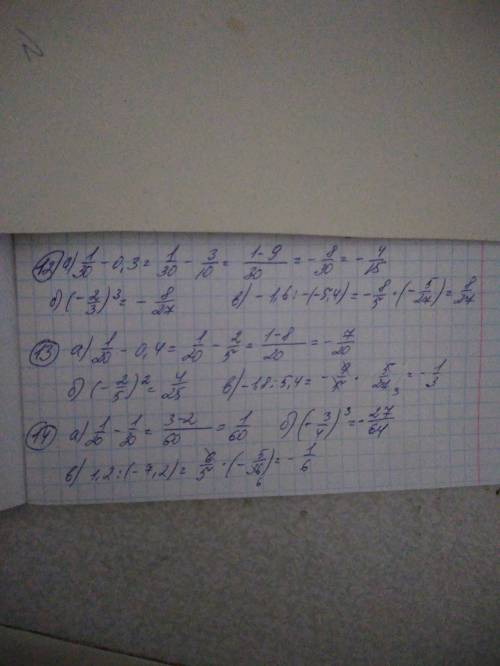 12) а) 1/30 - 0,3 = 1/30 - 3/10 = (1-9)/30 = -8/30 = -4/15
б) (-2/3)³ = -8/27 в) -1,6 : (-5,4) = -8/5 · (-5/27) = 8/27
13) а) 1/20 - 0,4 = 1/20 - 2/5 = (1-8)/20 = -7/20
б) (-2/5)² = 4/25 в) -1,8 : 5,4 = · 5/ 3 = -1/3
14) а) 1/20 - 1/20 = (3-2)/60 = 1/60 б) (-3/4)³ = -27/64
в) 1,2 : (-7,2) = 6/5 · (-5/36 6) = -1/6